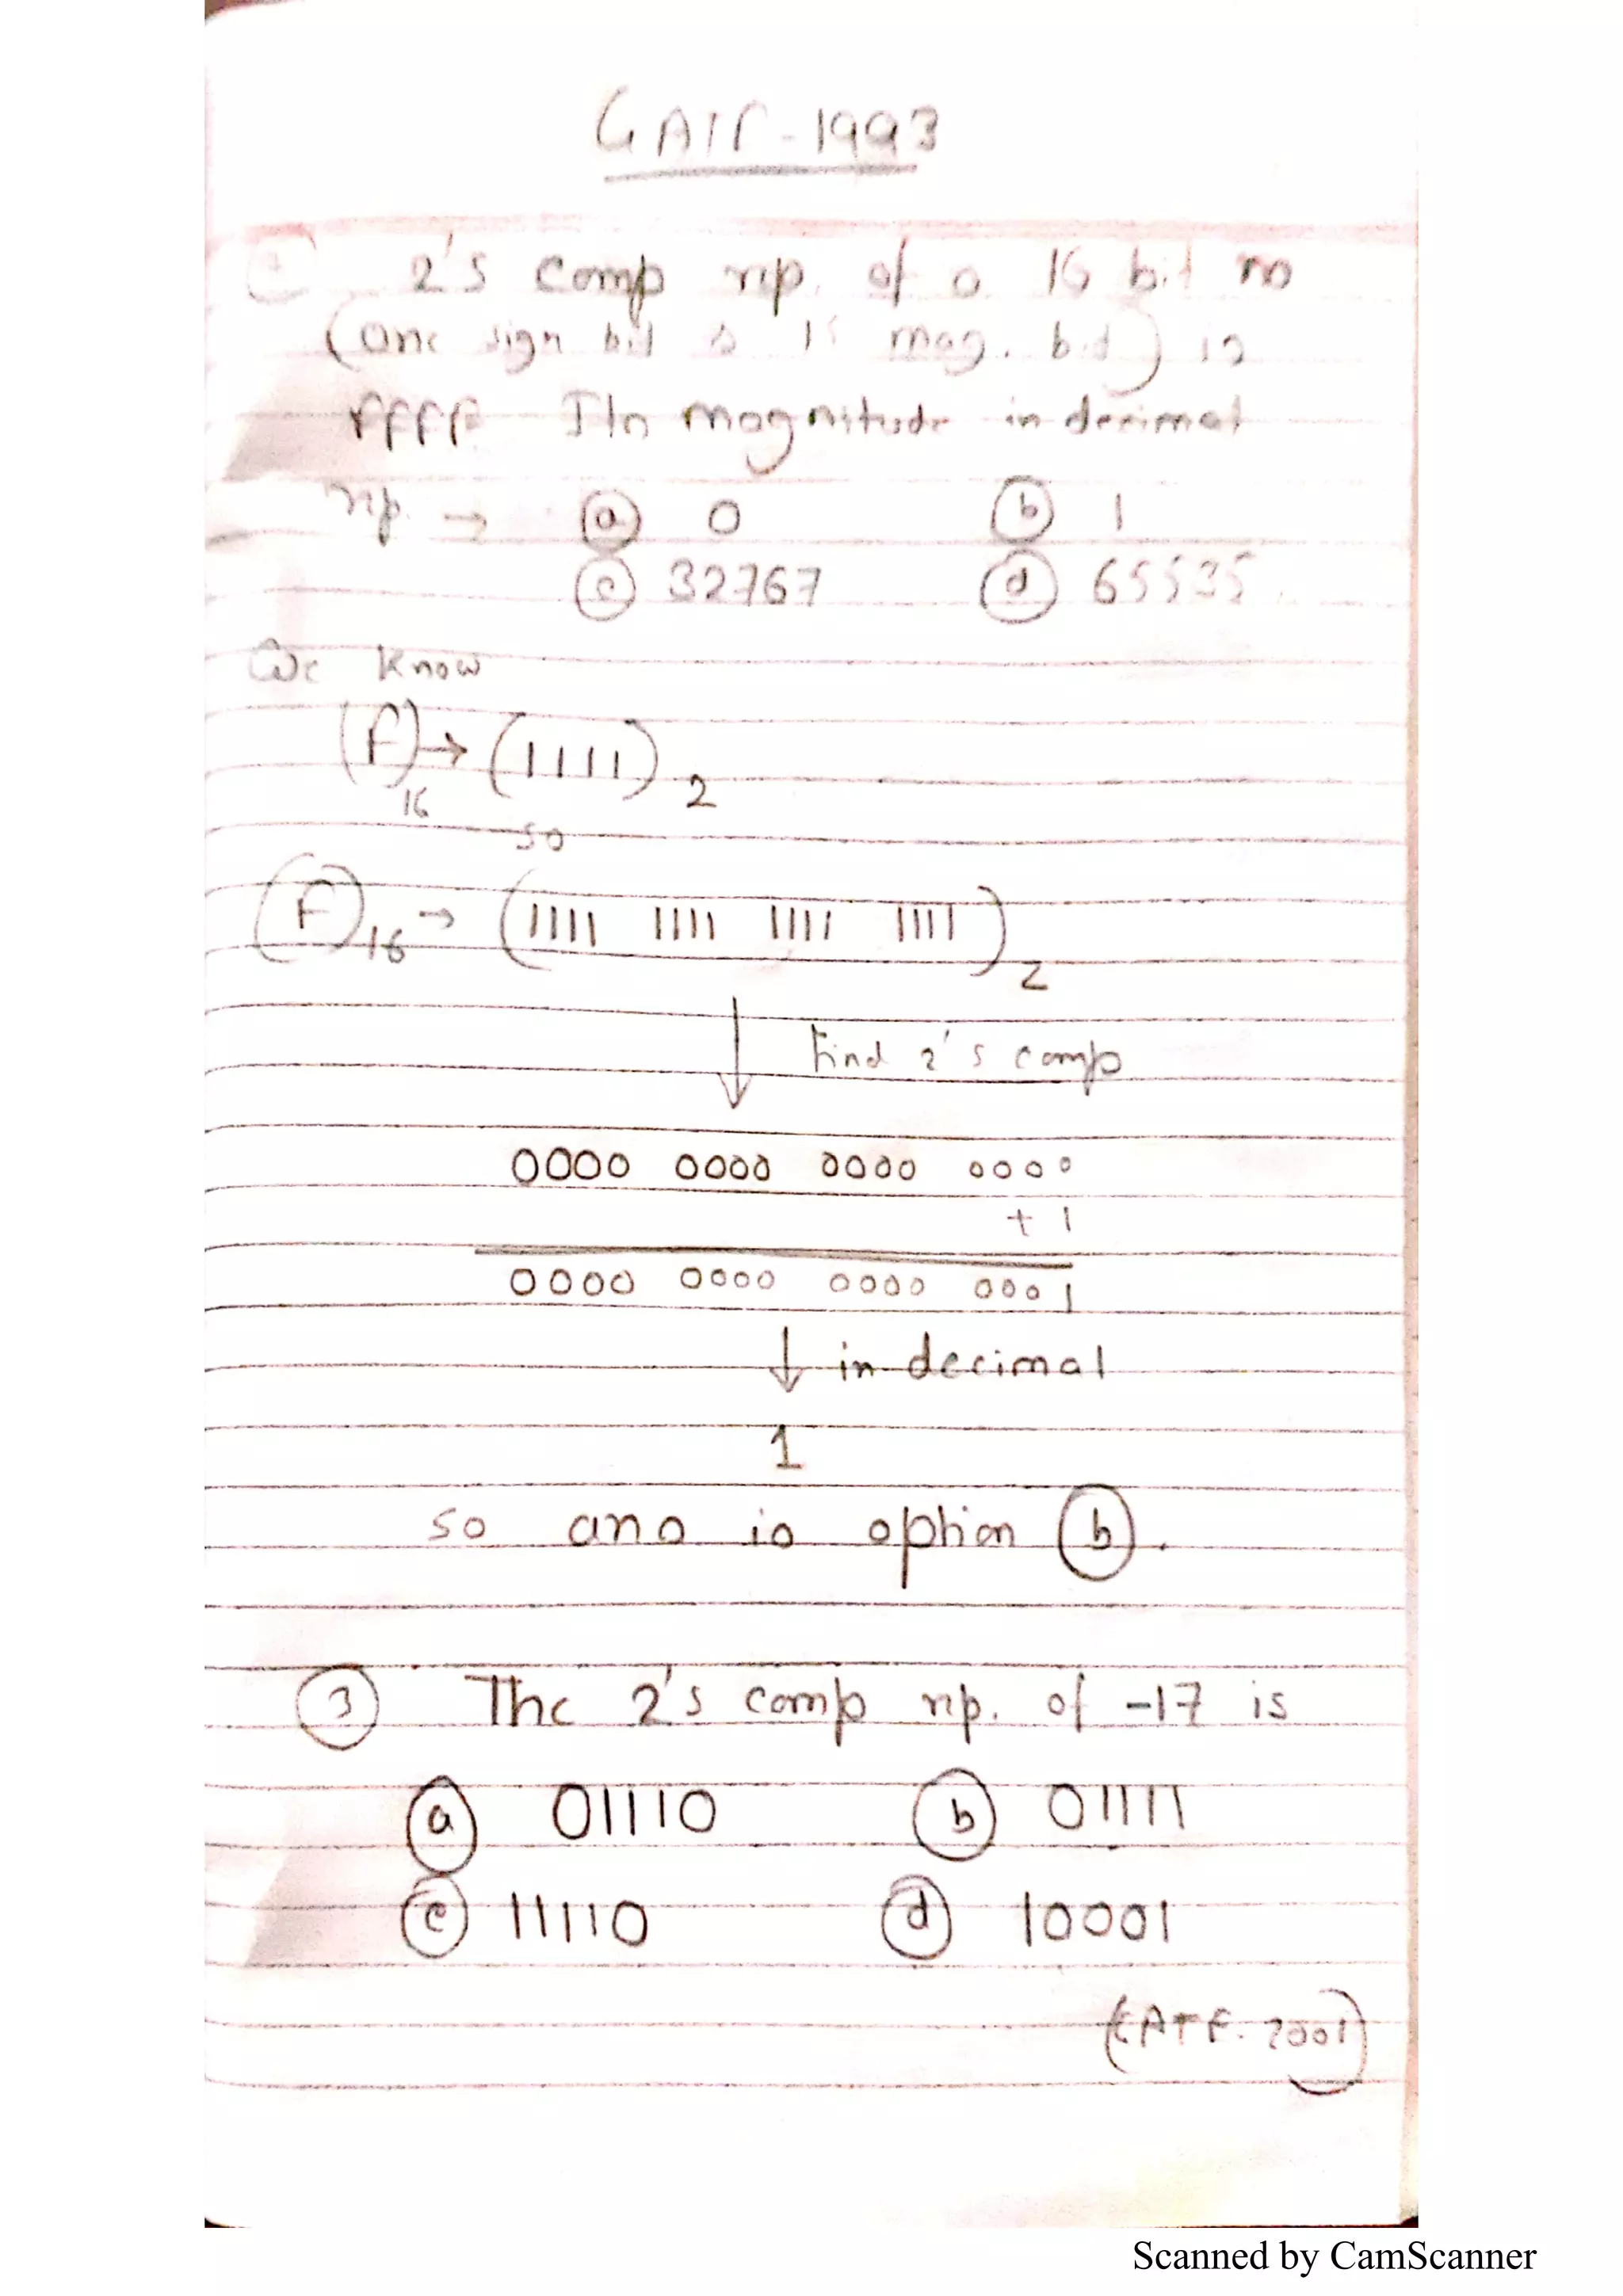 GATE-1993
2's comp rep. of a 16 bit no
(one sign bit & 15 mag. bit) is
FFFF Its magnitude in decimal
rep. → (a) 0 (b) 1
(c) 32767 (d) 65535.
We know
(F)16 → (1111)2
so
(F)16 → (1111 1111 1111 1111)2
↓ Find 2's comp
0000 0000 0000 0000
+ 1
0000 0000 0000 0001
↓ in decimal
1
so ans is option (b).
(3) The 2's comp rep. of -17 is
(a) 01110 (b) 01111
(c) 11110 (d) 10001
(GATE. 2001)
Scanned by CamScanner